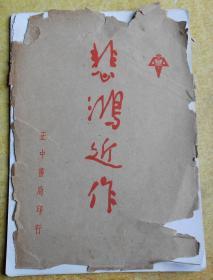 悲鴻近作
正中書局印行